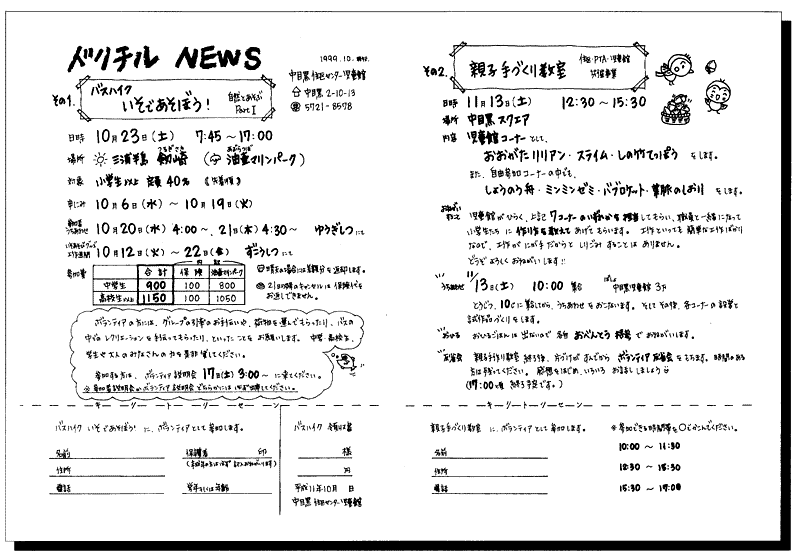 バリチル NEWS
1999.10.
中目黒住区センター児童館
中目黒 2-10-13
5721-8578
その1.
バスハイク
いそであそぼう!
自然とあそぶ
Part I
日時 10月23日(土) 7:45～17:00
場所 三浦半島 剱崎 (油壷マリンパーク)
対象 小学生以上 定員40名 《先着順》
申こみ 10月6日(水)～10月19日(火)
10月20日(水) 4:00～、21日(木) 4:30～ ゆうぎしつにて
10月12日(火)～22日(金) ずこうしつにて
参加費
内訳
合計 保険 油壷マリンパーク
中学生 900 100 800
高校生以上 1150 100 1050
雨天の場合には差額分を返却します。
21日以降のキャンセルは保険代をお返しできません。
ボランティアの方には、グループの引率のお手伝いや、荷物を運んでもらったり、バスの
中でのレクリエーションを手伝ってもらったり、といったことをお願いします。中学・高校生、
学生や大人のみなさんの力を是非貸してください。
参加する方は、ボランティア説明会 17日(土) 3:00～ に来てください。
※参加者説明会かボランティア説明会どちらかには必ず出席して下さい。
キリトリセン
バスハイク いそであそぼう! に、ボランティアとして参加します。
名前
保護者 印
住所
電話
学年もしくは年齢
バスハイク 領収書
様
円
平成11年10月 日
中目黒住区センター児童館
その2.
親子手づくり教室
住区・PTA・児童館
共催事業
日時 11月13日(土) 12:30～15:30
場所 中目黒スクエア
内容 児童館コーナーとして、
おおがたリリアン・スライム・しの竹てっぽう をします。
また、自由参加コーナーの中でも、
しょうのう舟・ミンミンゼミ・パブロケット・葉脈のしおり をします。
児童館がひらく、上記7コーナーのいずれかを担当してもらい、職員と一緒になって
小学生たちに作り方を教えてあげてもらいます。工作といっても簡単な工作ばかり
なので、工作がにが手だからとしりごみすることはありません。
どうぞよろしくおねがいします!!
うちあわせ 11/13日(土) 10:00 集合 中目黒児童館 3F
とうじつ、10じに集合してから、うちあわせをおこないます。そしてその後、各コーナーの設営と
試作品づくりをします。
おひる おひるごはんは出ないので各自おべんとう持参でおねがいします。
反省会 親子手作り教室終了後、かたづけがすんでからボランティア反省会をもちます。時間のある
方は残ってください。感想をはじめ、いろいろお話ししましょう
(17:00頃 終了予定です。)
キリトリセン
親子手づくり教室 に、ボランティアとして参加します。
※参加できる時間帯を○でかこんでください。
名前
住所
電話
10:00 ～ 11:30
12:30 ～ 15:30
15:30 ～ 17:00